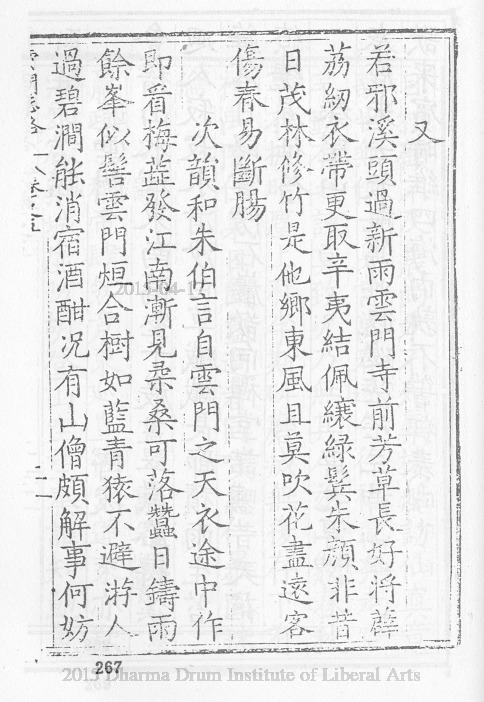 又
若邪溪頭過新雨雲門寺前芳草長好將薜
荔紉衣帶更取辛夷結佩纕綠鬓朱顏非昔
日茂林修竹是他鄉東風且莫吹花盡遠客
傷春易斷腸
次韻和朱伯言自雲門之天衣途中作
即看梅蕋發江南漸見柔桑可落蠶日鑄雨
餘峯似髻雲門烜合樹如藍青猿不避游人
過碧澗能消宿酒酣况有山僧頗解事何妨
雲門志畧
卷之五
二
2015-04-17
267
2015 Dharma Drum Institute of Liberal Arts